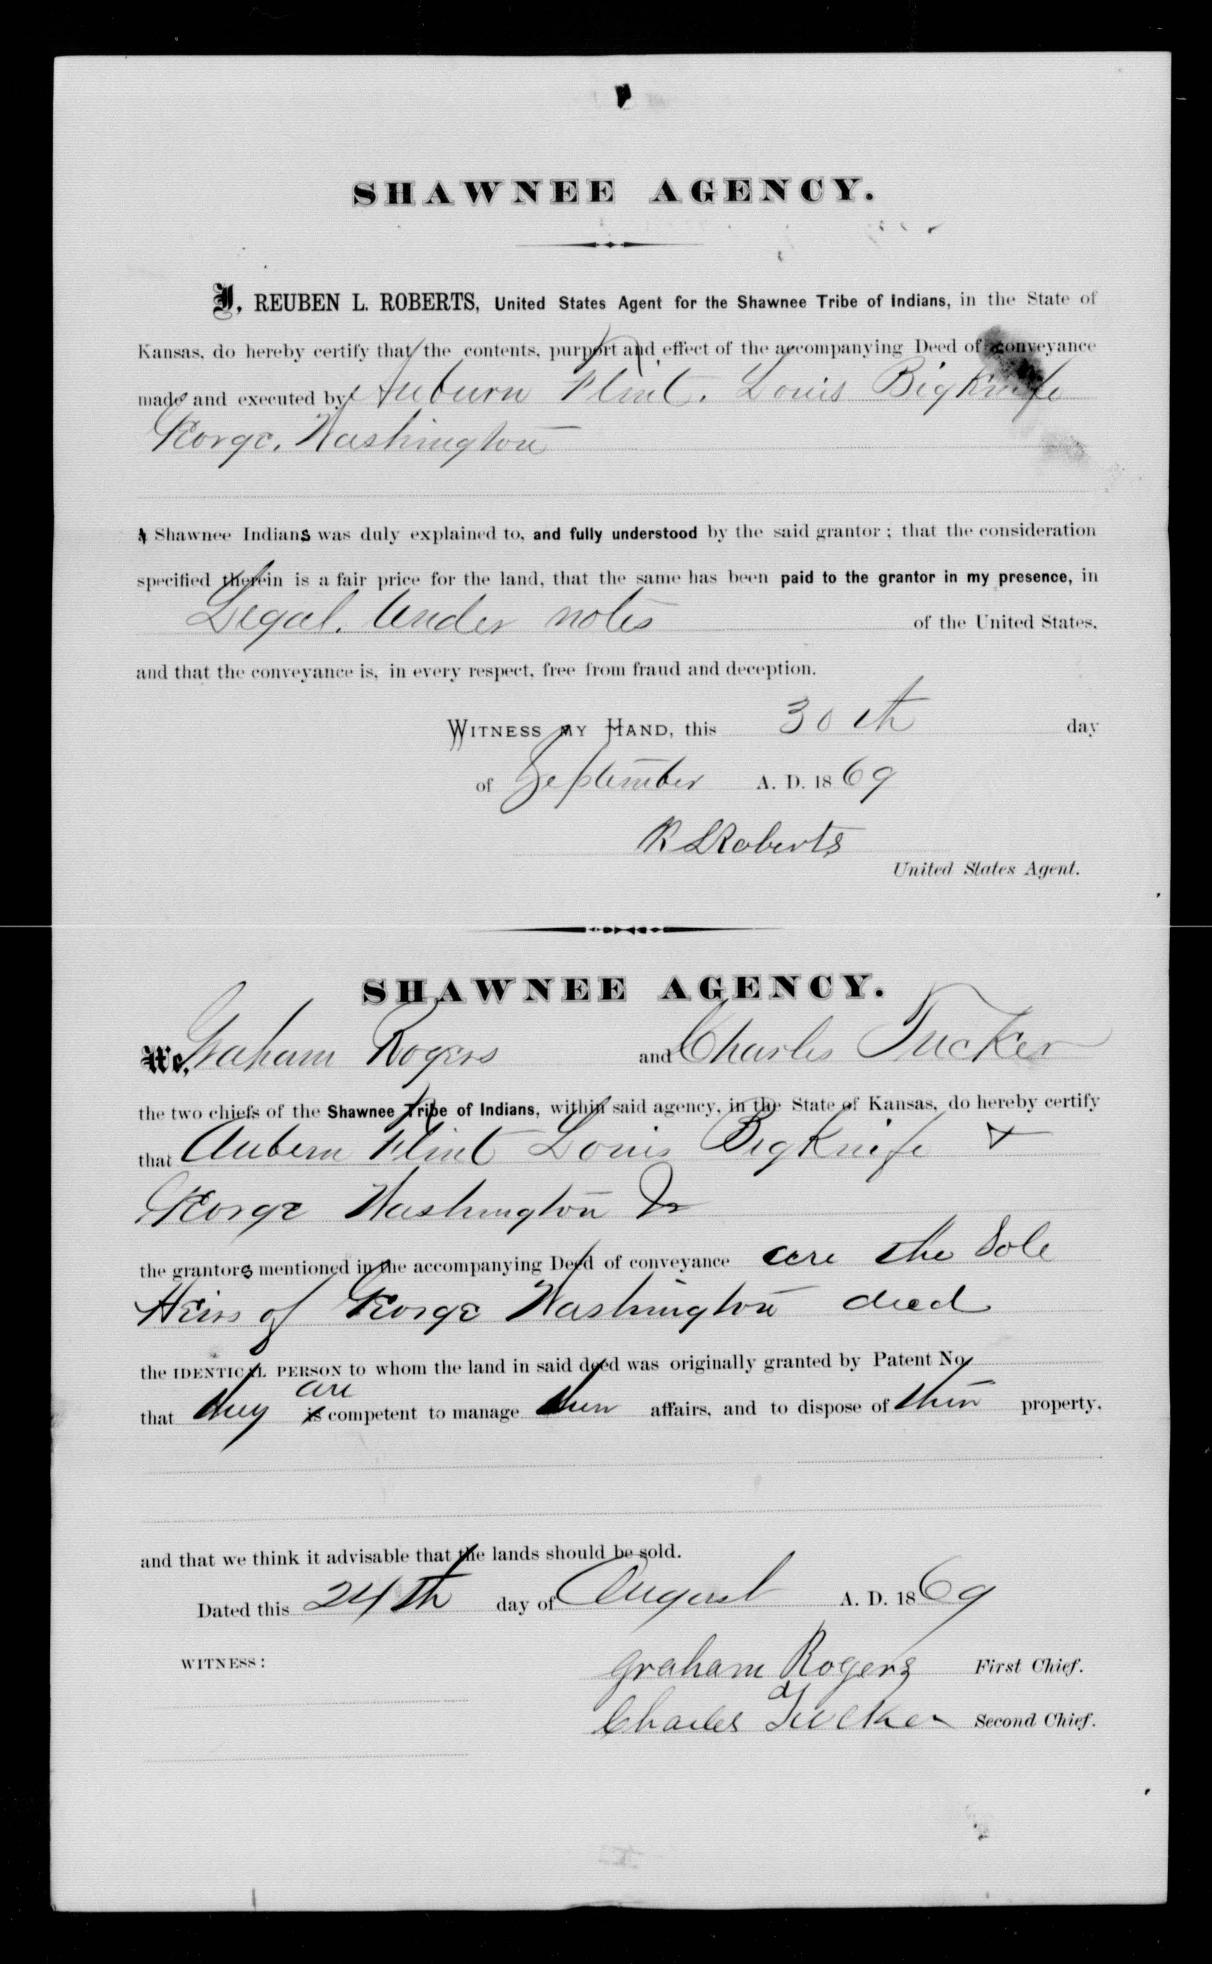 SHAWNEE AGENCY.
I, REUBEN L. ROBERTS, United States Agent for the Shawnee Tribe of Indians, in the State of
Kansas, do hereby certify that the contents, purport and effect of the accompanying Deed of conveyance
made and executed by Auburn Flint. Louis Bigknife
George. Washington
A Shawnee Indians was duly explained to, and fully understood by the said grantor; that the consideration
specified therein is a fair price for the land, that the same has been paid to the grantor in my presence, in
Legal. Tender notes of the United States,
and that the conveyance is, in every respect, free from fraud and deception.
WITNESS MY HAND, this 30th day
of September A. D. 1869
R L Roberts
United States Agent.
SHAWNEE AGENCY.
We, Graham Rogers and Charles Tucker
the two chiefs of the Shawnee Tribe of Indians, within said agency, in the State of Kansas, do hereby certify
that Auburn Flint Louis BigKnife +
George Washington Jr
the grantors mentioned in the accompanying Deed of conveyance are the Sole
Heirs of George Washington decd
the IDENTICAL PERSON to whom the land in said deed was originally granted by Patent No
are
that they is competent to manage their affairs, and to dispose of their property.
and that we think it advisable that the lands should be sold.
Dated this 24th day of August A. D. 1869
WITNESS:
Graham Rogers First Chief.
Charles Tucker Second Chief.